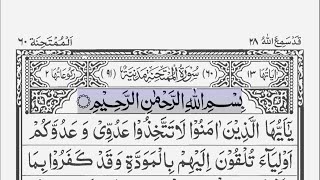 قَدْ سَمِعَ اللّٰهُ ٢٨ الْمُمْتَحِنَة ٦٠
اٰيَاتُهَا ١٣ (٦٠) سُوْرَةُ الْمُمْتَحِنَةِ مَدَنِيَّةٌ (٩١) رُكُوْعَاتُهَا ٢
بِسْمِ اللّٰهِ الرَّحْمٰنِ الرَّحِيْمِ
يٰۤاَيُّهَا الَّذِيْنَ اٰمَنُوْا لَا تَتَّخِذُوْا عَدُوِّيْ وَ عَدُوَّكُمْ
اَوْلِيَآءَ تُلْقُوْنَ اِلَيْهِمْ بِالْمَوَدَّةِ وَ قَدْ كَفَرُوْا بِمَا